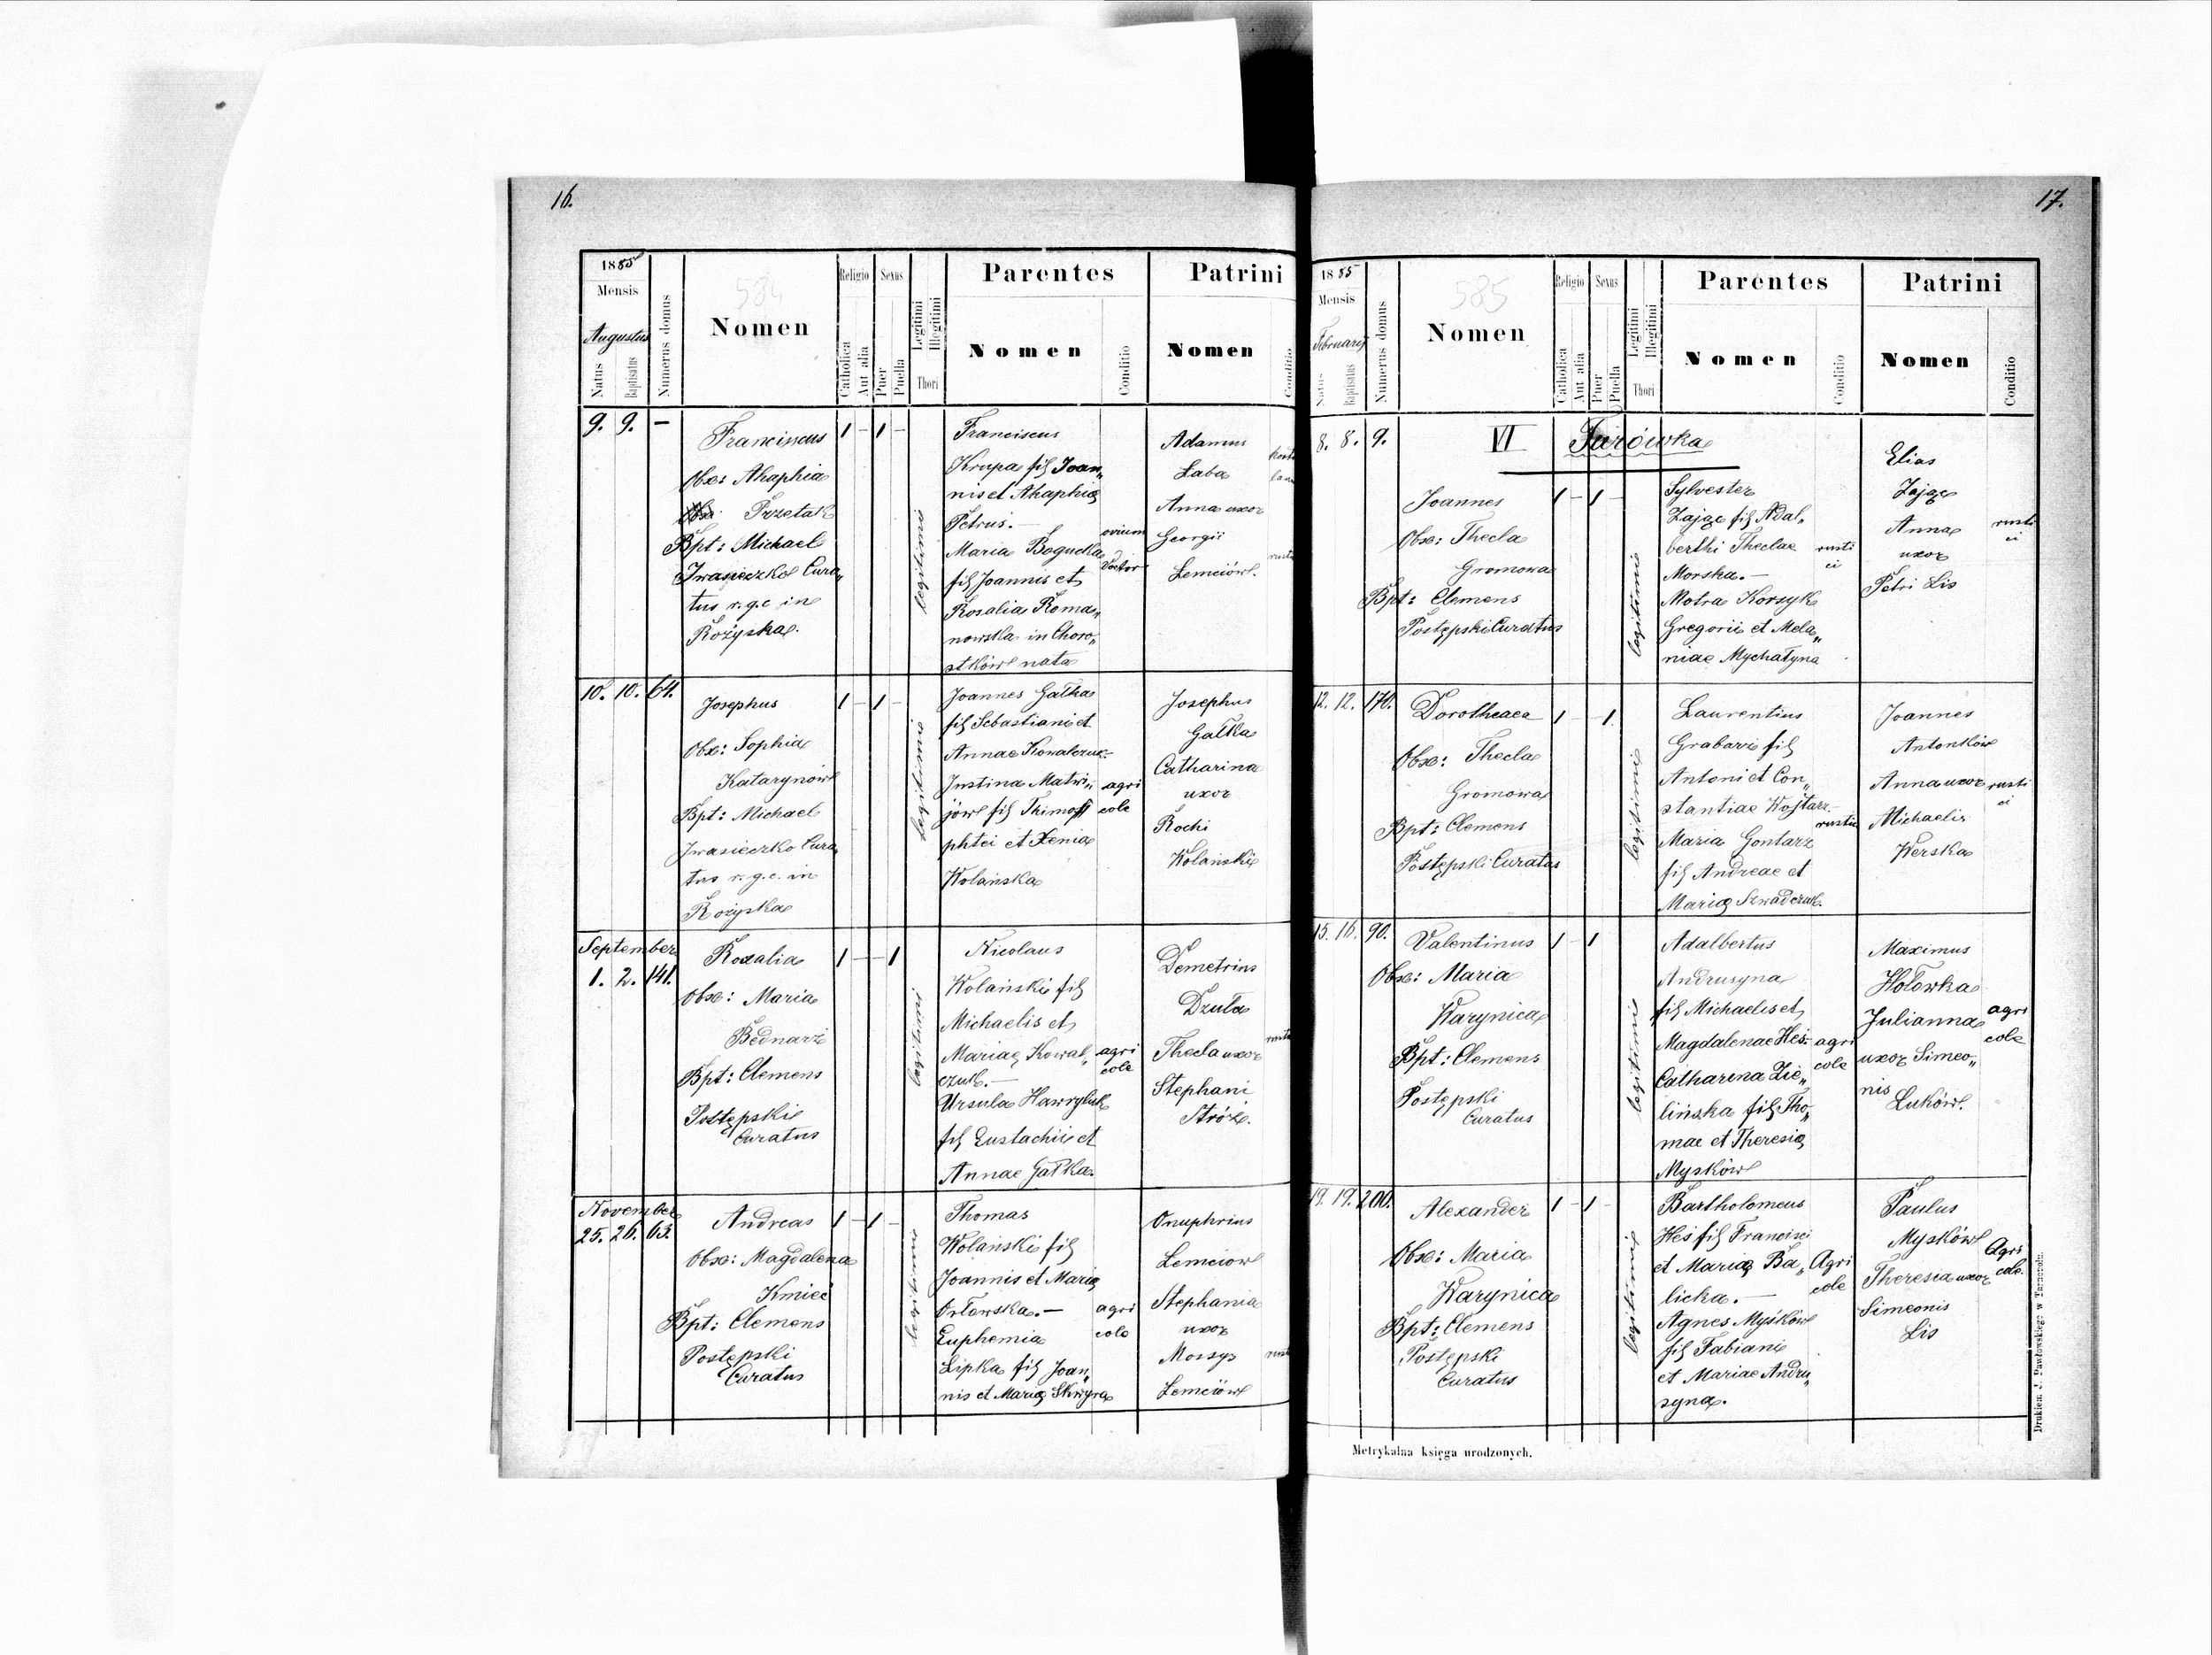 16.
1885
Mensis
Augustus
Natus
Baptisatus
Numerus domus
584
Nomen
Religio
Catholica
Aut alia
Sexus
Puer
Puella
Legitimi
Illegitimi
Thori
Parentes
Nomen
Conditio
Patrini
Nomen
Conditio
9. 9. —
Franciscus
Obse: Ahaphia
Przetak
Bpt: Michael
Iwasieczko Cura„
tus r.g.c in
Rożyska.
1 – 1 –
legitimi
Franciscus
Krupa fil Joan„
nis et Ahaphiae
Petrus.—
Maria Bogucka
fil Joannis et
Rozalia Roma„
nowska in Choro„
stków nata
ovium
Adamus
Łaba
Anna uxor
Georgii
Lemciów.
10. 10. 64.
Josephus
Obse: Sophia
Katarynów
Bpt: Michael
Iwasieczko Cura„
tus r.g.c. in
Rożyska
1 – 1 –
legitimi
Joannes Gałka
fil Sebastiani et
Annae Kowalczuk
Justina Matwi„
jów fil Thimoff
phtei et Xenia
Wolańska
agri
cole
Josephus
Gałka
Catharina
uxor
Rochi
Wolański
September
1. 2. 141.
Rozalia
Obse: Maria
Bednarz
Bpt: Clemens
Postępski
Curatus
1 – – 1
legitimi
Nicolaus
Wolański fil
Michaelis et
Mariae Kowal„
czuk.—
Ursula Hawryluk
fil Eustachii et
Annae Gałka.
agri
cole
Demetrius
Dzuła
Thecla uxor
Stephani
Stróż.
November
25. 26. 63.
Andreas
Obse: Magdalena
Kmieć
Bpt: Clemens
Postępski
Curatus
1 – 1 –
legitimi
Thomas
Wolański fil
Joannis et Mariae
Orłowska.—
Euphemia
Lipka fil Joan„
nis et Mariae Skrzyra
agri
cole
Onuphrius
Lemciów
Stephania
uxor
Mossys
Lemciów
17.
1885
Mensis
Februarij
Natus
Baptisatus
Numerus domus
585
Nomen
Religio
Catholica
Aut alia
Sexus
Puer
Puella
Legitimi
Illegitimi
Thori
Parentes
Nomen
Conditio
Patrini
Nomen
Conditio
VI Turówka
8. 8. 9.
Joannes
Obse: Thecla
Gromowa
Bpt: Clemens
Postępski Curatus
1 – 1 –
legitimi
Sylvester
Zając fil Adal„
berthi Theclae
Morska.—
Motra Korsyk
Gregorii et Mela„
niae Mychatyna
rusti
ci
Elias
Zając
Anna
uxor
Petri Lis
rusti
ci
12. 12. 170.
Dorotheaea
Obse: Thecla
Gromowa
Bpt: Clemens
Postępski Curatus
1 – – 1
legitimi
Laurentius
Grabarz fil
Antoni et Con„
stantiae Wojtarz
Maria Gontarz
fil Andreae et
Mariae Szwadczuk.
Joannes
Antonków
Anna uxor
Michaelis
Werska
rusti
ci
15. 16. 90.
Valentinus
Obse: Maria
Warynica
Bpt: Clemens
Postępski
Curatus
1 – 1
legitimi
Adalbertus
Andrusyna
fil Michaelis et
Magdalenae Heś.
Catharina Zie„
lińska fil Tho„
mae et Theresiae
Myśków
agri
cole
Maximus
Hołowka
Julianna
uxor Simeo„
nis
Luków.
agri
cole
19. 19. 200.
Alexander
Obse: Maria
Warynica
Bpt: Clemens
Postępski
Curatus
1 – 1 –
legitimi
Bartholomeus
Heś fil Francisci
et Mariae Ba„
licka.—
Agnes Myśków
fil Fabiani
et Mariae Andru„
syna.
Agri
cole
Paulus
Myśków
Theresia uxor
Simeonis
Lis
Agri
cole.
Metrykalna księga urodzonych.
Drukiem J. Pawłowskiego w Tarnopolu.